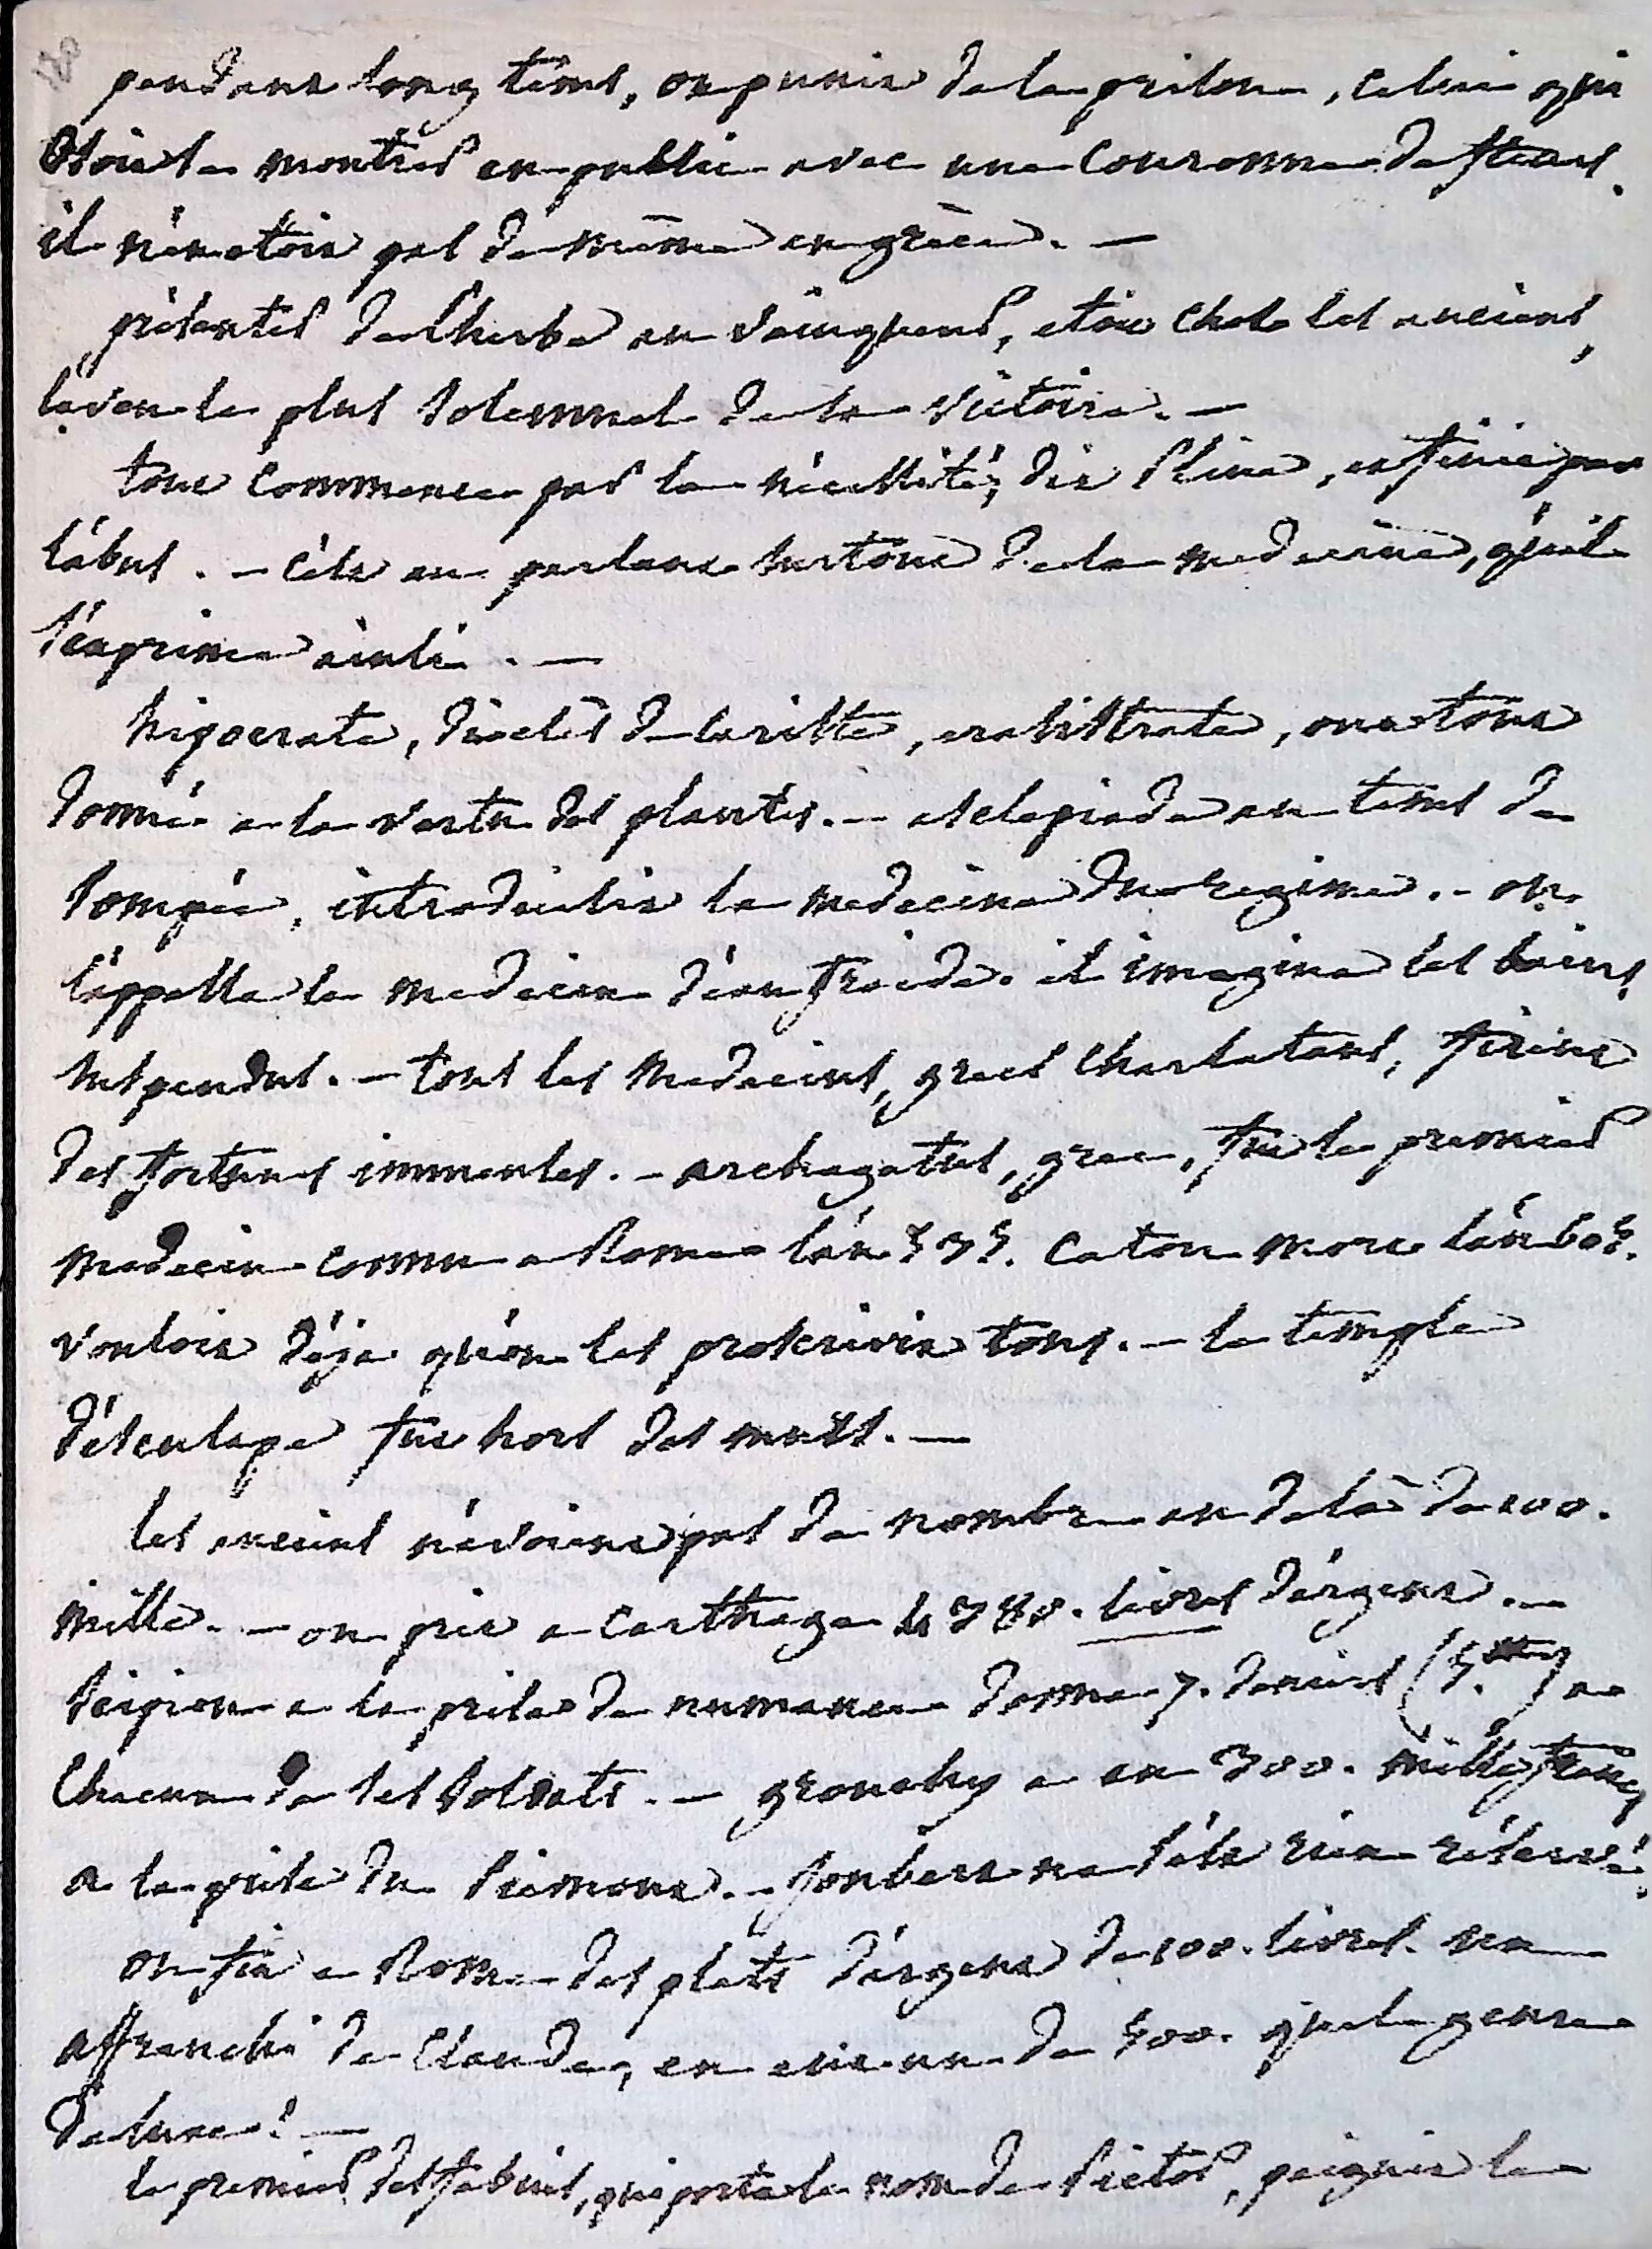 pendant long tems, on punit de la prison, celui qui
osoit se montrer en public avec une couronne de fleurs.
il n'en etoit pas de même en grèce. —
présenter de l'herbe au vainqueur, etoit chez les anciens,
l'aveu le plus solemnel de la victoire. —
tout commence par la nécessité, dit Pline, et finit par
l'abus. — c'est en parlant surtout de la medecine, qu'il
s'exprime ainsi. —
hipocrate, dioclès de cariste, erasistrate, ont tout
donné a la vertu des plantes. — asclepiade au tems de
Pompée, introduisit la medecine du regime. — on
l'appella le medecin d'eau froide. il imagina les bains
suspendus. — tous les medecins, grecs charlatans, firent
des fortunes immenses. — archagatus, grec, fut le premier
medecin connu a Rome l'an 535. Caton mort l'an 605.
vouloit déja qu'on les proscrivit tous. — le temple
d'esculape fut hors des murs. —
les anciens n'avoient pas de nombre au delà de 100.
mille. — on prit a Carthage 4780. livres d'argent. —
Scipion a la prise de numance donna 7. deniers (5.) a
chacun de ses soldats. — grouchy a eu 300. mille francs
a la prise du Piemont. — Joubert ne s'est rien réservé.
on fit a Rome des plats d'argent de 100. livres. un
affranchi de Claude, en eut un de 500. quel genre
de luxe! —
le premier des fabius, qui porta le nom de Pictor, peignit le